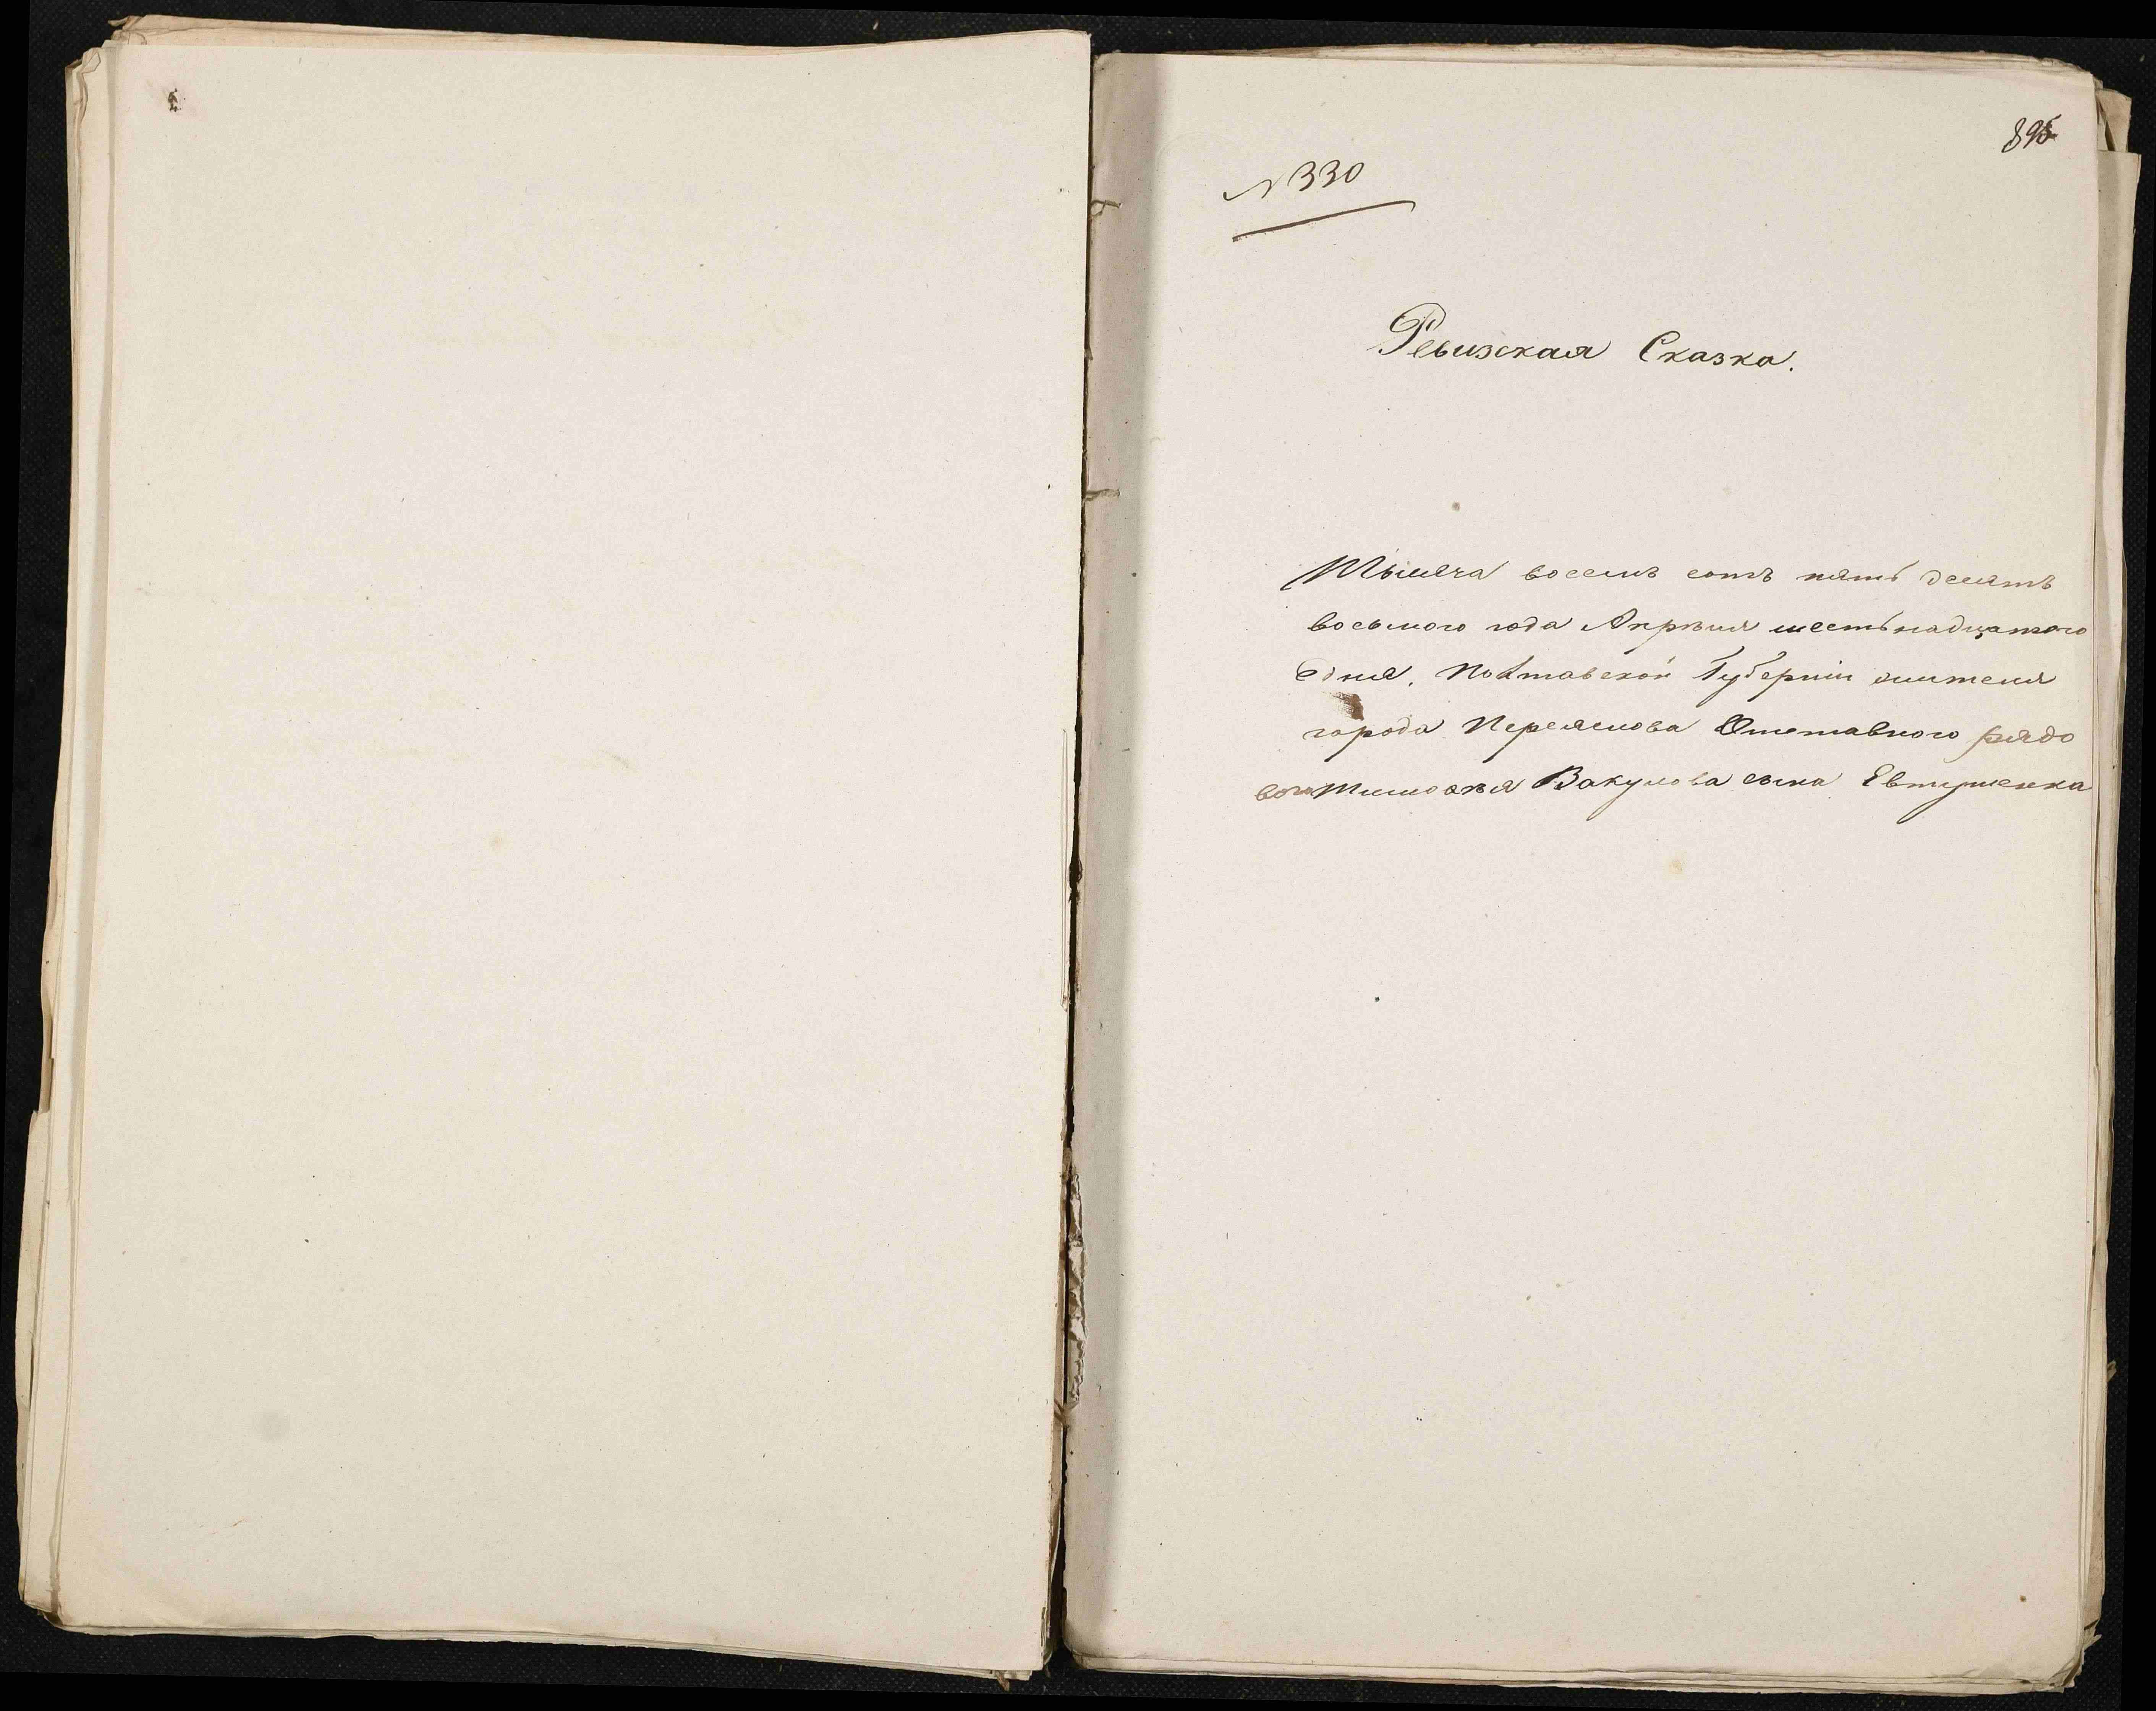 895
N 330
Ревизская Сказка.
Тысяча восемъ сотъ пять десятъ
восьмого года Апрѣля шестьнадцатого
дня, Полтавской Губерніи жителя
города Переяслова Отставного рядо
вого Тимофѣя Вакулова сына Евтушенка